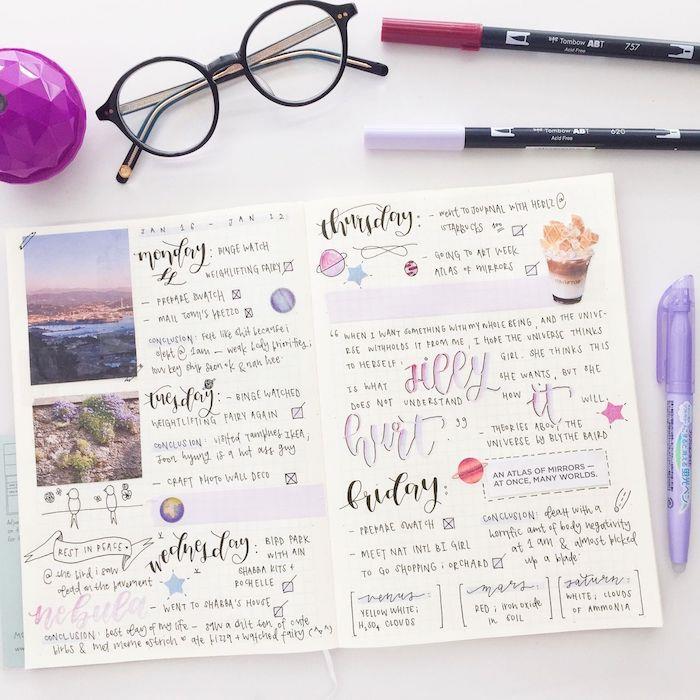 Tombow ABT 757
Acid Free
Tombow ABT 620
Acid Free
JAN 16 - JAN 22
monday: BINGE WATCH
WEIGHLIFTING FAIRY
- PREPARE SWATCH
- MAIL TOMI'S PREZZO
CONCLUSION: felt like shit because i
slept @ 1am - weak body priorities;
low key ship
tuesday: - BINGE WATCHED
WEIGHTLIFTING FAIRY AGAIN
CONCLUSION: visited tampines IKEA;
joon hyung is a hot ass guy
- CRAFT PHOTO WALL DECO
REST IN PEACE
@ the bird i saw
dead on the pavement
wednesday: BIRD PARK
WITH AIN
SHABBA KITS +
ROCHELLE
- WENT TO SHABBA'S HOUSE
nebula
CONCLUSION: best day of my life - saw a shit ton of cute
birbs & met meme ostrich ate pizza + watched fairy (^o^)
thursday: - WENT TO JOURNAL WITH HERLZ @
STARBUCKS
- GOING TO ART WEEK
ATLAS OF MIRRORS
" WHEN I WANT SOMETHING WITH MY WHOLE BEING, AND THE UNIVE-
RSE WITHHOLDS IT FROM ME, I HOPE THE UNIVERSE THINKS
TO HERSELF: silly GIRL. SHE THINKS THIS
IS WHAT SHE WANTS, BUT SHE
DOES NOT UNDERSTAND HOW it WILL
hurt. "
- THEORIES ABOUT THE
UNIVERSE BY BLYTHE BAIRD
AN ATLAS OF MIRRORS —
AT ONCE, MANY WORLDS.
friday:
- PREPARE SWATCH
- MEET NAT INTL BI GIRL
TO GO SHOPPING; ORCHARD
CONCLUSION: dealt with a
horrific amt of body negativity
at 1 am & almost picked
up a blade.
venus:
YELLOW WHITE;
H2SO4 CLOUDS
mars:
RED; iron oxide
in SOIL
saturn:
WHITE; CLOUDS
OF AMMONIA